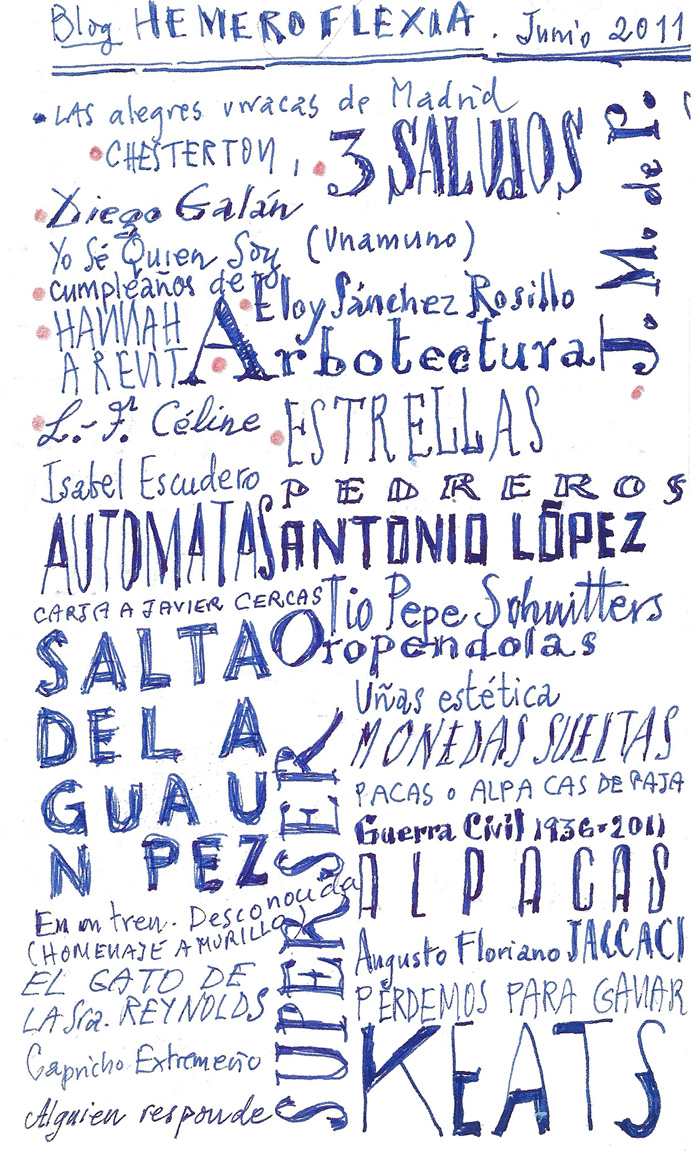 Blog HEMEROFLEXIA. Junio 2011
LAS alegres urracas de Madrid
CHESTERTON,
3 SALUDOS
J. M. de P.
Diego Galán
Yo Sé Quien Soy (Unamuno)
cumpleaños de
Eloy Sánchez Rosillo
HANNAH
ARENT
Arbotectura
L.-F. Céline
ESTRELLAS
Isabel Escudero
PEDREROS
AUTOMATAS
ANTONIO LÓPEZ
CARTA A JAVIER CERCAS
Tio Pepe Schwitters
Oropendolas
SALTA
DEL A
GUA U
N PEZ
Uñas estética
MONEDAS SUELTAS
PACAS o ALPACAS DE PAJA
Guerra Civil 1936-2011
ALPACAS
SUPER SER
En un tren. Desconocida
(HOMENAJE A MURILLO)
Augusto Floriano JACCACI
EL GATO DE
LA Sra. REYNOLDS
PERDEMOS PARA GANAR
Capricho Extremeño
KEATS
Alguien responde